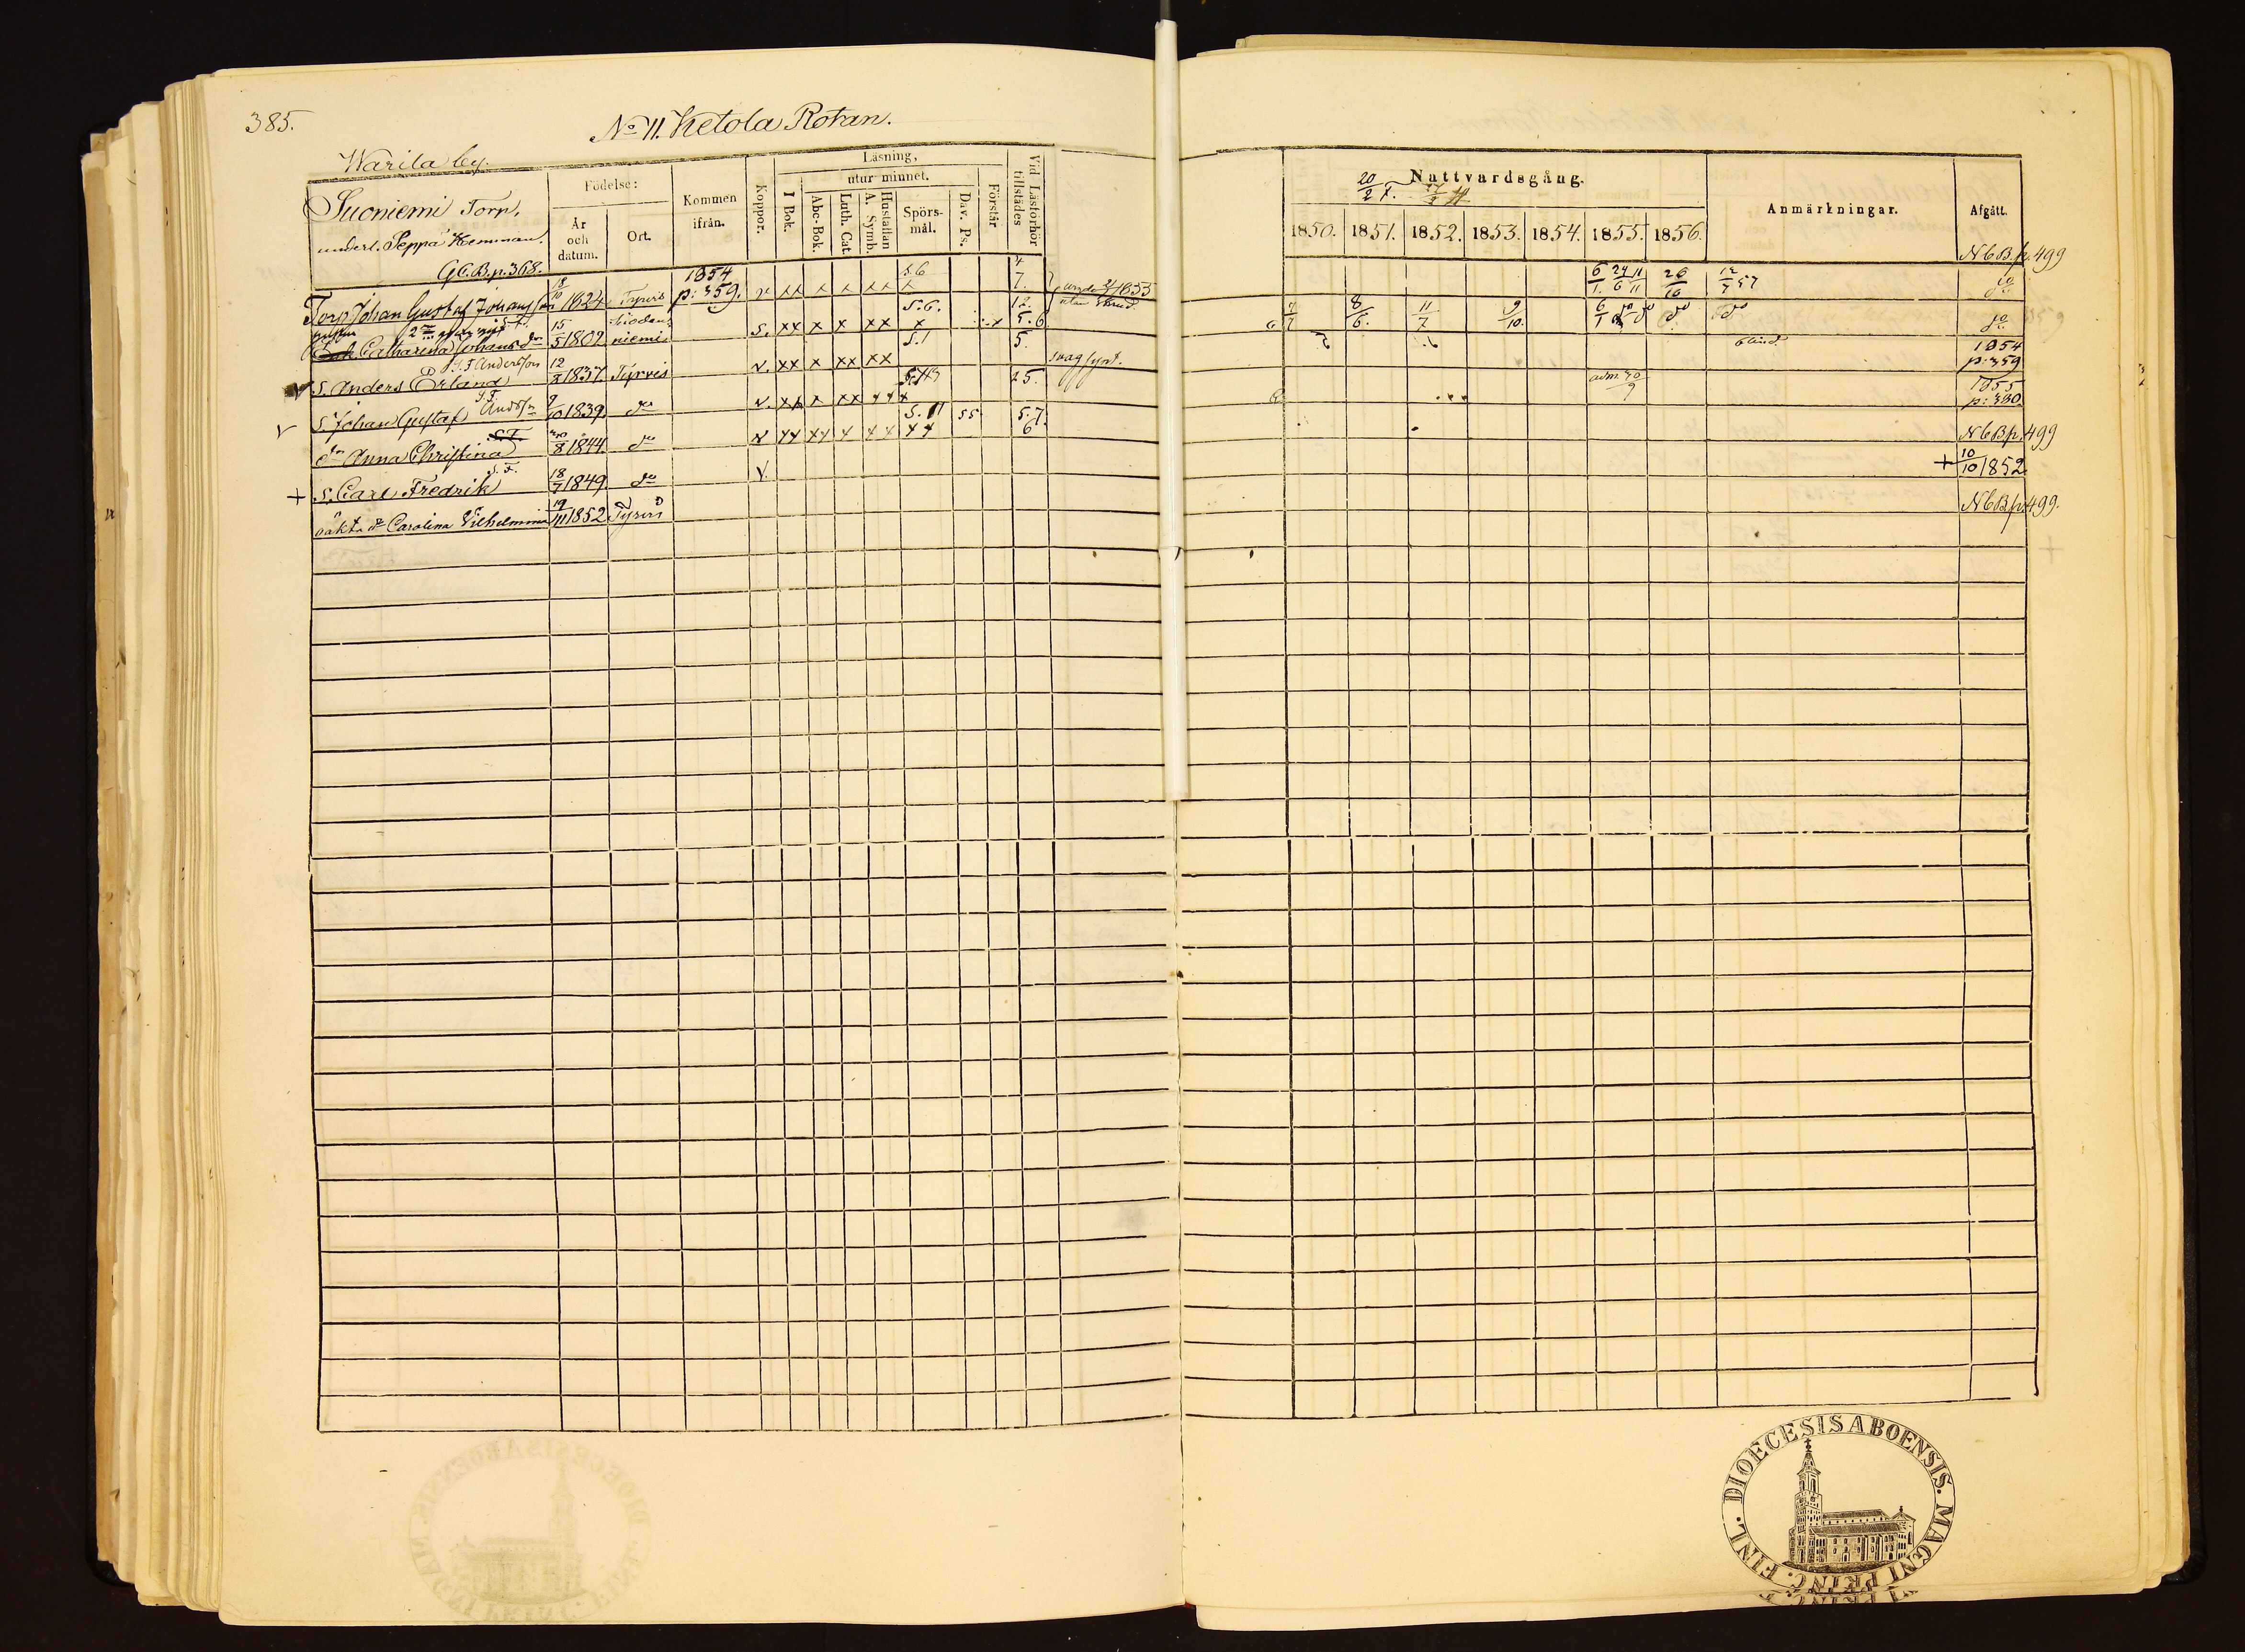 385.
No 11. Ketola Rotan.
Warila by.
Suoniemi Torp.
underl. Seppä Hemman.
G.C.B.p.368.
Födelse:
År och datum.
Ort.
Kommen ifrån.
Koppor.
Läsning,
I Bok.
utur minnet.
Abc-Bok.
Luth. Cat.
Hustaflan A. Symb.
Spörsmål.
Dav. Ps.
Förstår
Vid Läsförhör tillstädes
20/2 T.
Nattvardsgång.
1850. 1851. 1852. 1853. 1854. 1855. 1856.
Anmärkningar.
Afgått.
N.C.B.p.499
Torp. Johan Gustaf Johansson 18/10 1824 Tyrvis 1854 p: 359. v xx x x xx S.6 x 4. 7. 6/1. 24/6 11/11 26/10 12/7 57 do
2dra giftet
Catharina Johansdr 15/5 1802 niemi S. xx x x xx S.6. x 12. 5. 6 utan 4/7 8/6. 11/7 9/10. 6/1 do do do do do
S. Anders Erland Andersson 12/8 1837. Tyrvis v. xx x xx xx S.1 5. svag synt. blind. 1854 p: 359
S. Johan Gustaf Andss. 9/10 1839. do v. xx x xx xxx 25. adm. 30/9 1855 p: 380.
dr Anna Christina S.F. 30/8 1844. do v xx xx x xx S. 11 xx 55 5.7. 6 N C B p. 499
+ S. Carl Fredrik S.F. 18/7 1849 do v. + 10/10 1852
oäkt. dr Carolina Vilhelmina 19/11 1852 Tyrvis N C B p. 499.
DIOECESIS ABOENSIS. MAGNI PRINC. FINL.